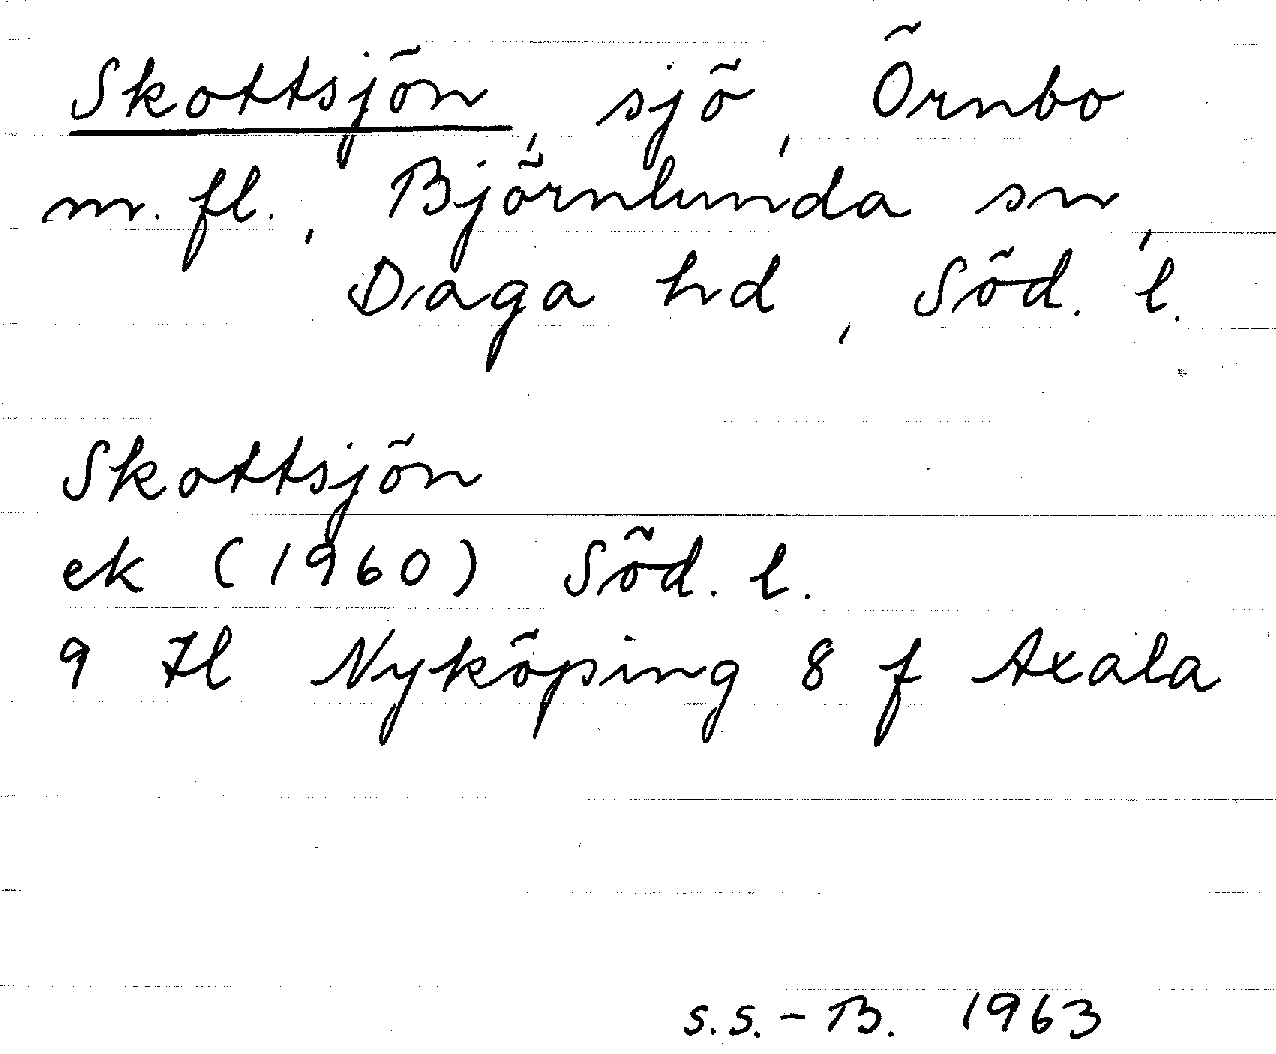 Skottsjön, sjö, Örnbo
m. fl., Björnlunda sn,
Daga hd, Söd. l.
Skottsjön
ek (1960) Söd. l.
9 H Nyköping 8 f Axala
S.S.-B. 1963